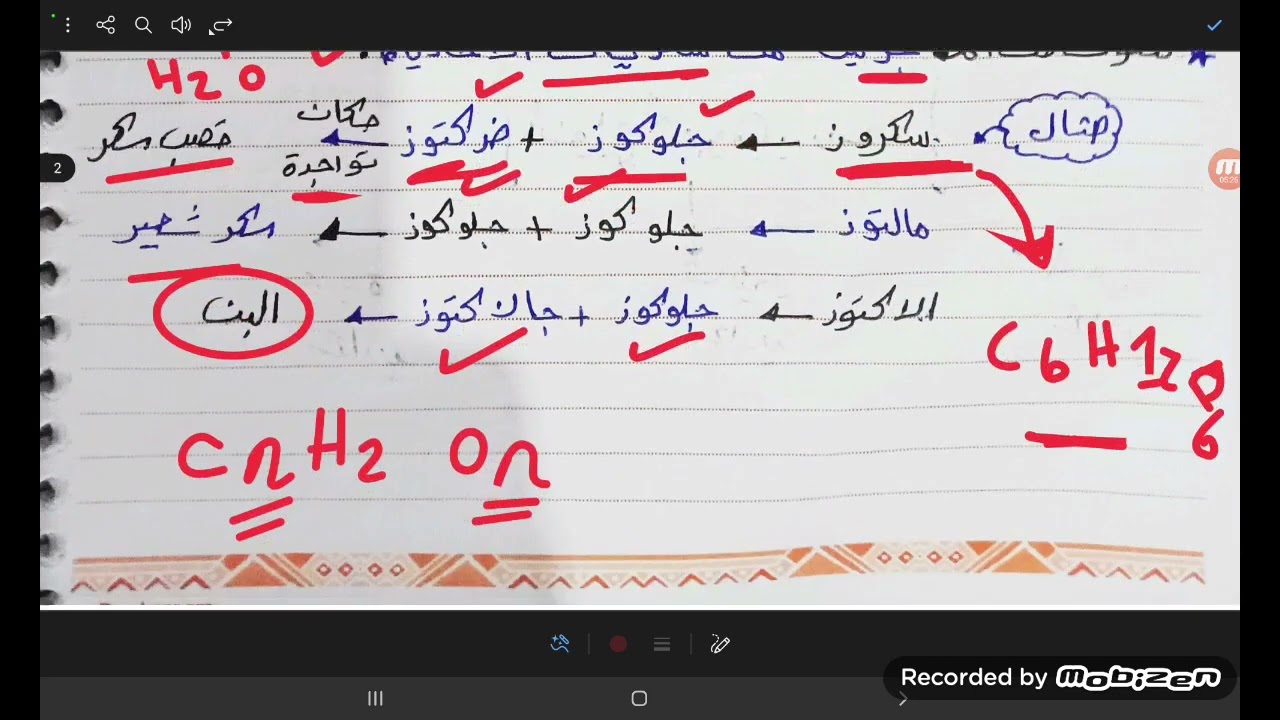 H2O
مثال سكروز ← جلوكوز + فركتوز ← قصب سكر
مكان تواجدة
مالتوز ← جلوكوز + جلوكوز ← سكر شعير
الاكتوز ← جلوكوز + جالاكتوز ← البن
C6H12O6
CnH2On
2
05:25
Recorded by Mobizen